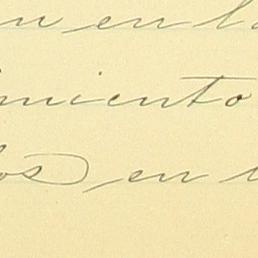 n en la
imiento
los en